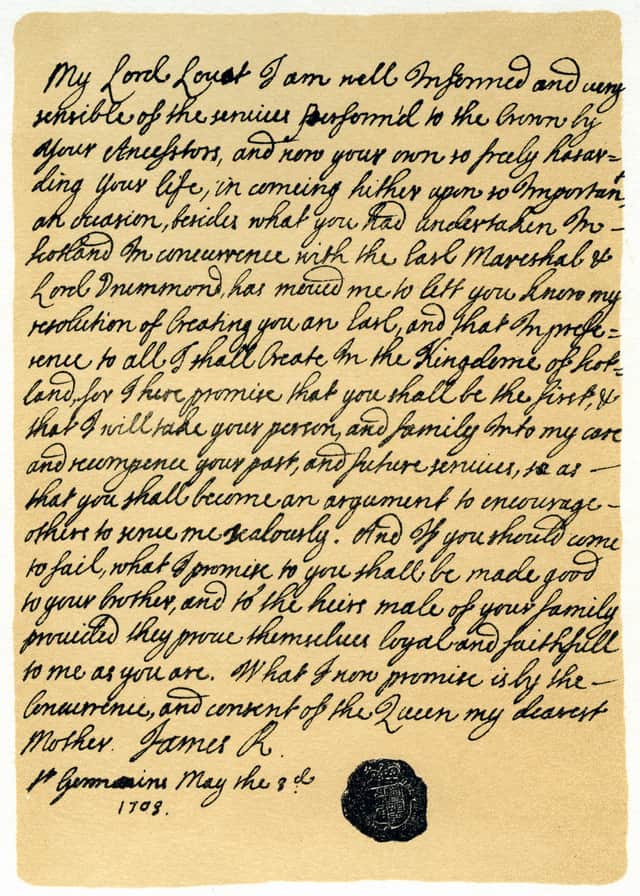 My Lord Lovat I am well Informed and very
sensible of the services performd to the Crown by
your Ancesstors, and now your own so freely hasar=
ding your life, in comeing hither upon so Important
an occasion, besides what you had undertaken In—
Scotland In concurrence with the Earl Mareshal &
Lord Drummond, has moved me to lett you know my
resolution of Creating you an Earl, and that In prefe=
rence to all I shall Create In the Kingdome of Scot=
land, for I here promise that you shall be the first, &
that I will take your person, and family Into my care
and recompence your past, and future services, so as —
that you shall become an argument to encourage—
others to serve me zealously. And If you should come
to fail, what I promise to you shall be made good
to your brother, and to the heirs male of your family
provided they prove themselves loyal and faithfull
to me as you are. What I now promise is by the—
Concurrence, and consent of the Queen my dearest
Mother. James R.
St Germains May the 3d
1703.